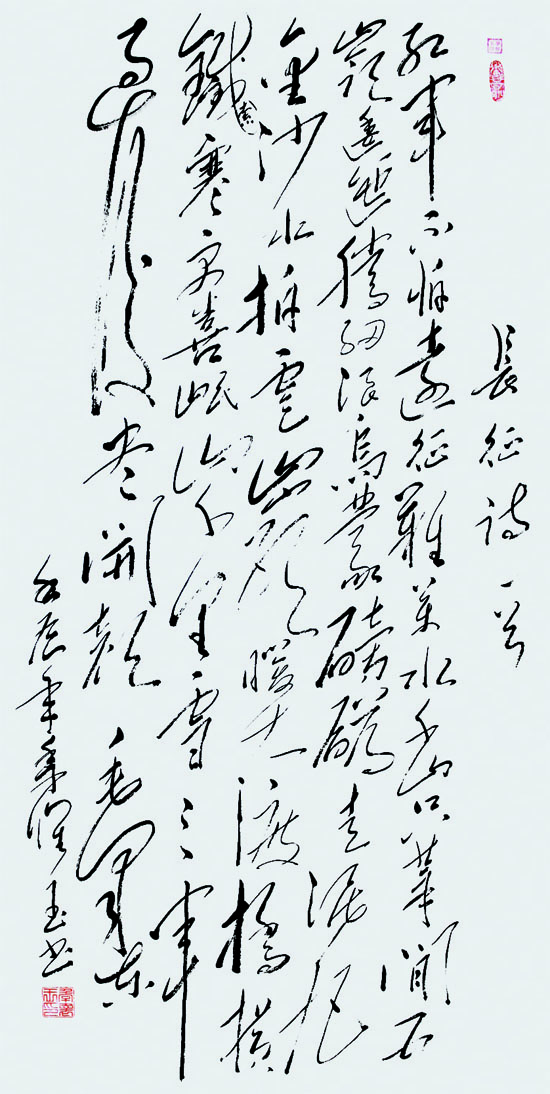 長征诗一首
红軍不怕遠征難萬水千山只等閒五
嶺逶迤腾细浪烏蒙磅礴走泥丸
金沙水拍雲崖暖大渡橋橫
鐵索寒更喜岷山千里雪三軍
過後尽開颜 毛澤東
辰年 玉书